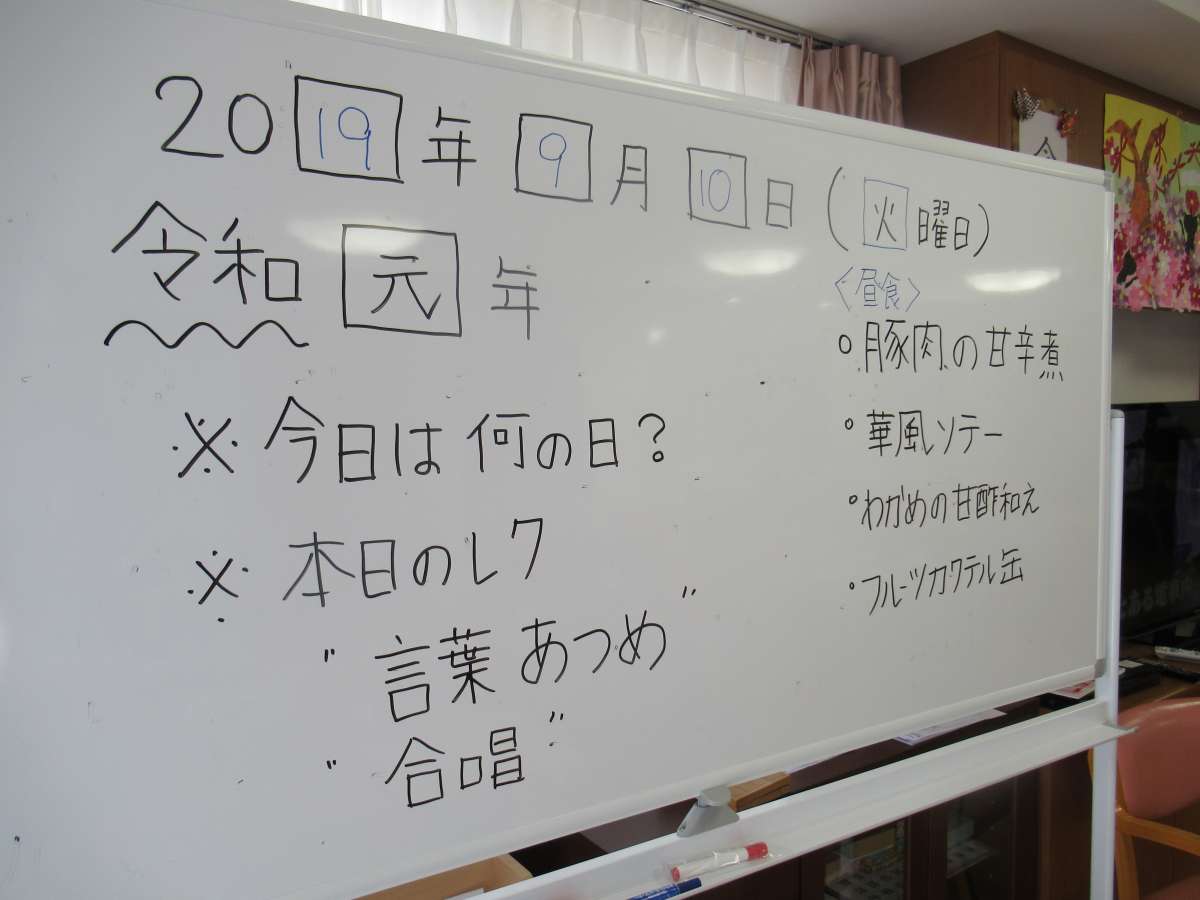 2019年 9月 10日 (火曜日)
令和 元年
※ 今日は何の日?
※ 本日のレク
" 言葉あつめ "
" 合唱 "
<昼食>
○豚肉の甘辛煮
○華風ソテー
○わかめの甘酢和え
○フルーツカクテル缶